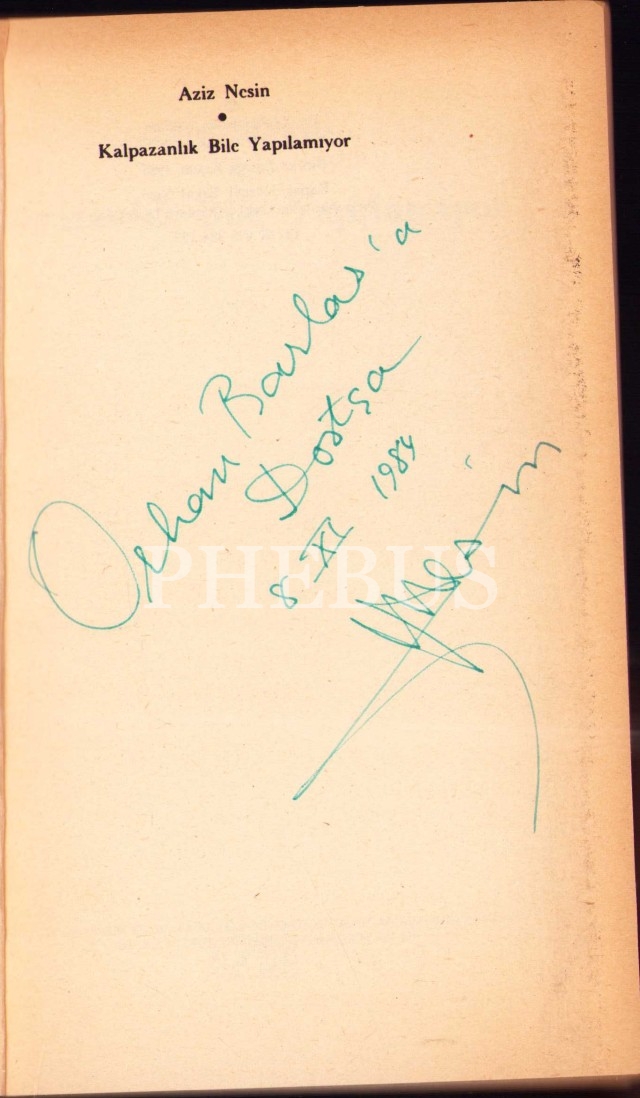 Aziz Nesin
•
Kalpazanlık Bile Yapılamıyor
Orhan Barlas'a
Dostça
8 XI 1984
Nesin
PHEBUS